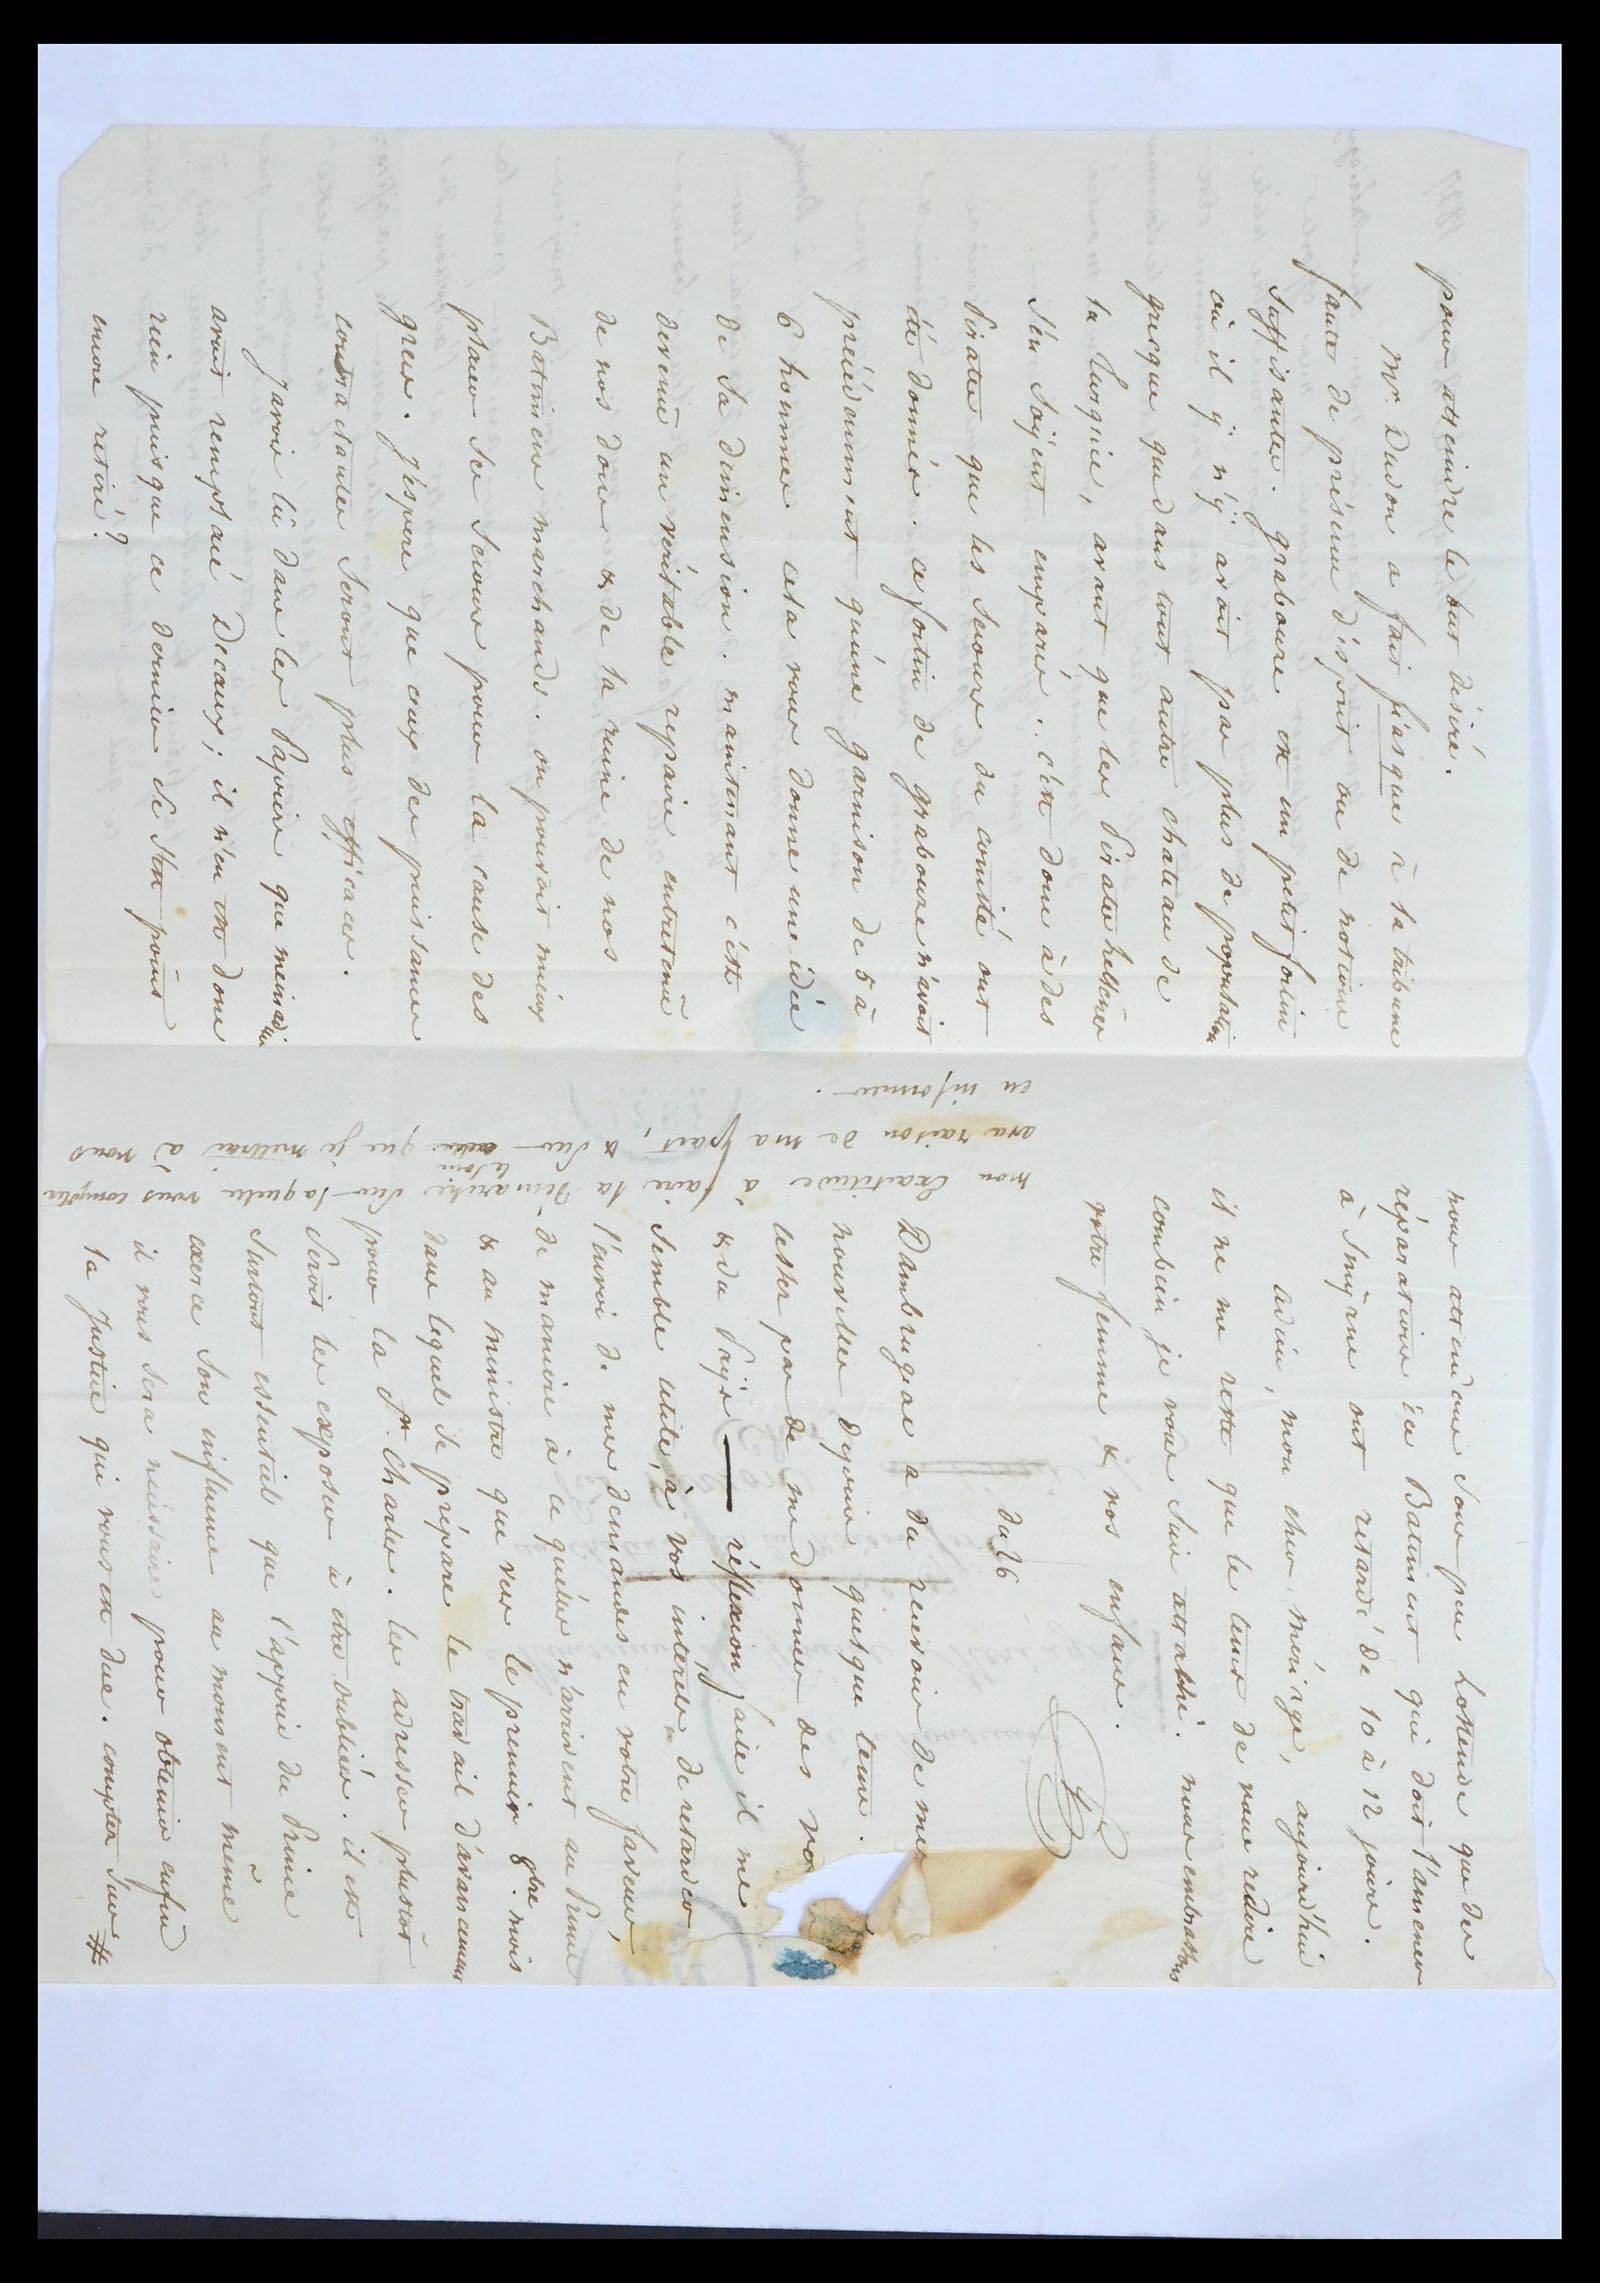 pour atteindre le but désiré.
Mr. Dudon a fait fiasque à la tribune
faute de présence d'esprit ou de notions
suffisantes. grabouse est un petit fortin
où il ÿ n'ÿ avoit pas plus de population
grecque que dans tout autre chateau de
la Turquie, avant que les Pirates hellênes
s'en soÿent emparés. c'est donc à des
Pirates que les secours du comité ont
été donnés. ce fortin de grabouse n'avoit
précédemment qu'une garnison de 5 à
6 hommes cela vous donne une idée
de sa dimension. maintenant c'est
devenu un véritable repaire entretenu
de nos dons & de la ruine de nos
Batiments marchands. on pouvoit mieux
placer ses secours pour la cause des
grecs. J'espere que ceux des puissances
contractantes seront plus efficaces.
J'avois lû dans les Papiers que
avoit remplacé Decaux; il n'en est donc
rien puisque ce dernier ne s'est point
encore retiré?
nous attendons sous peu Lostende que des
réparations au Batiment qui doit l'amener
à Smÿrne ont retardé de 10 à 12 jours.
adieu, mon cher, aujourd'hui
il ne me reste que le tems de vous redire
combien je vous suis attaché. nous embrassons
votre femme & vos enfans.
du 26
Dambrugeac a du recevoir de mes
nouvelles depuis quelque tems.
de me donner des vo
& du Païs réflexion faite il me
semble utile, à vos interets, de retarder
l'envoi de mes demandes en votre faveur,
de maniere à ce qu'elles n'arrivent au Prince
& au ministre que vers le premier 8bre. mois
dans lequel se prépare le travail d'avancement
pour la St. Charles. les adresser plustôt
seroit les exposer à etre oubliées. il est
surtout essentiel que l'appui du Prince
exerce son influence au moment même
où il vous sera nécessaire pour obtenir enfin
la justice qui vous est due. comptez sur #
mon exactitude à faire la démarche sur laquelle vous comptez
avec raison de ma part, & sur le soin que je mettrai à vous
en informer.